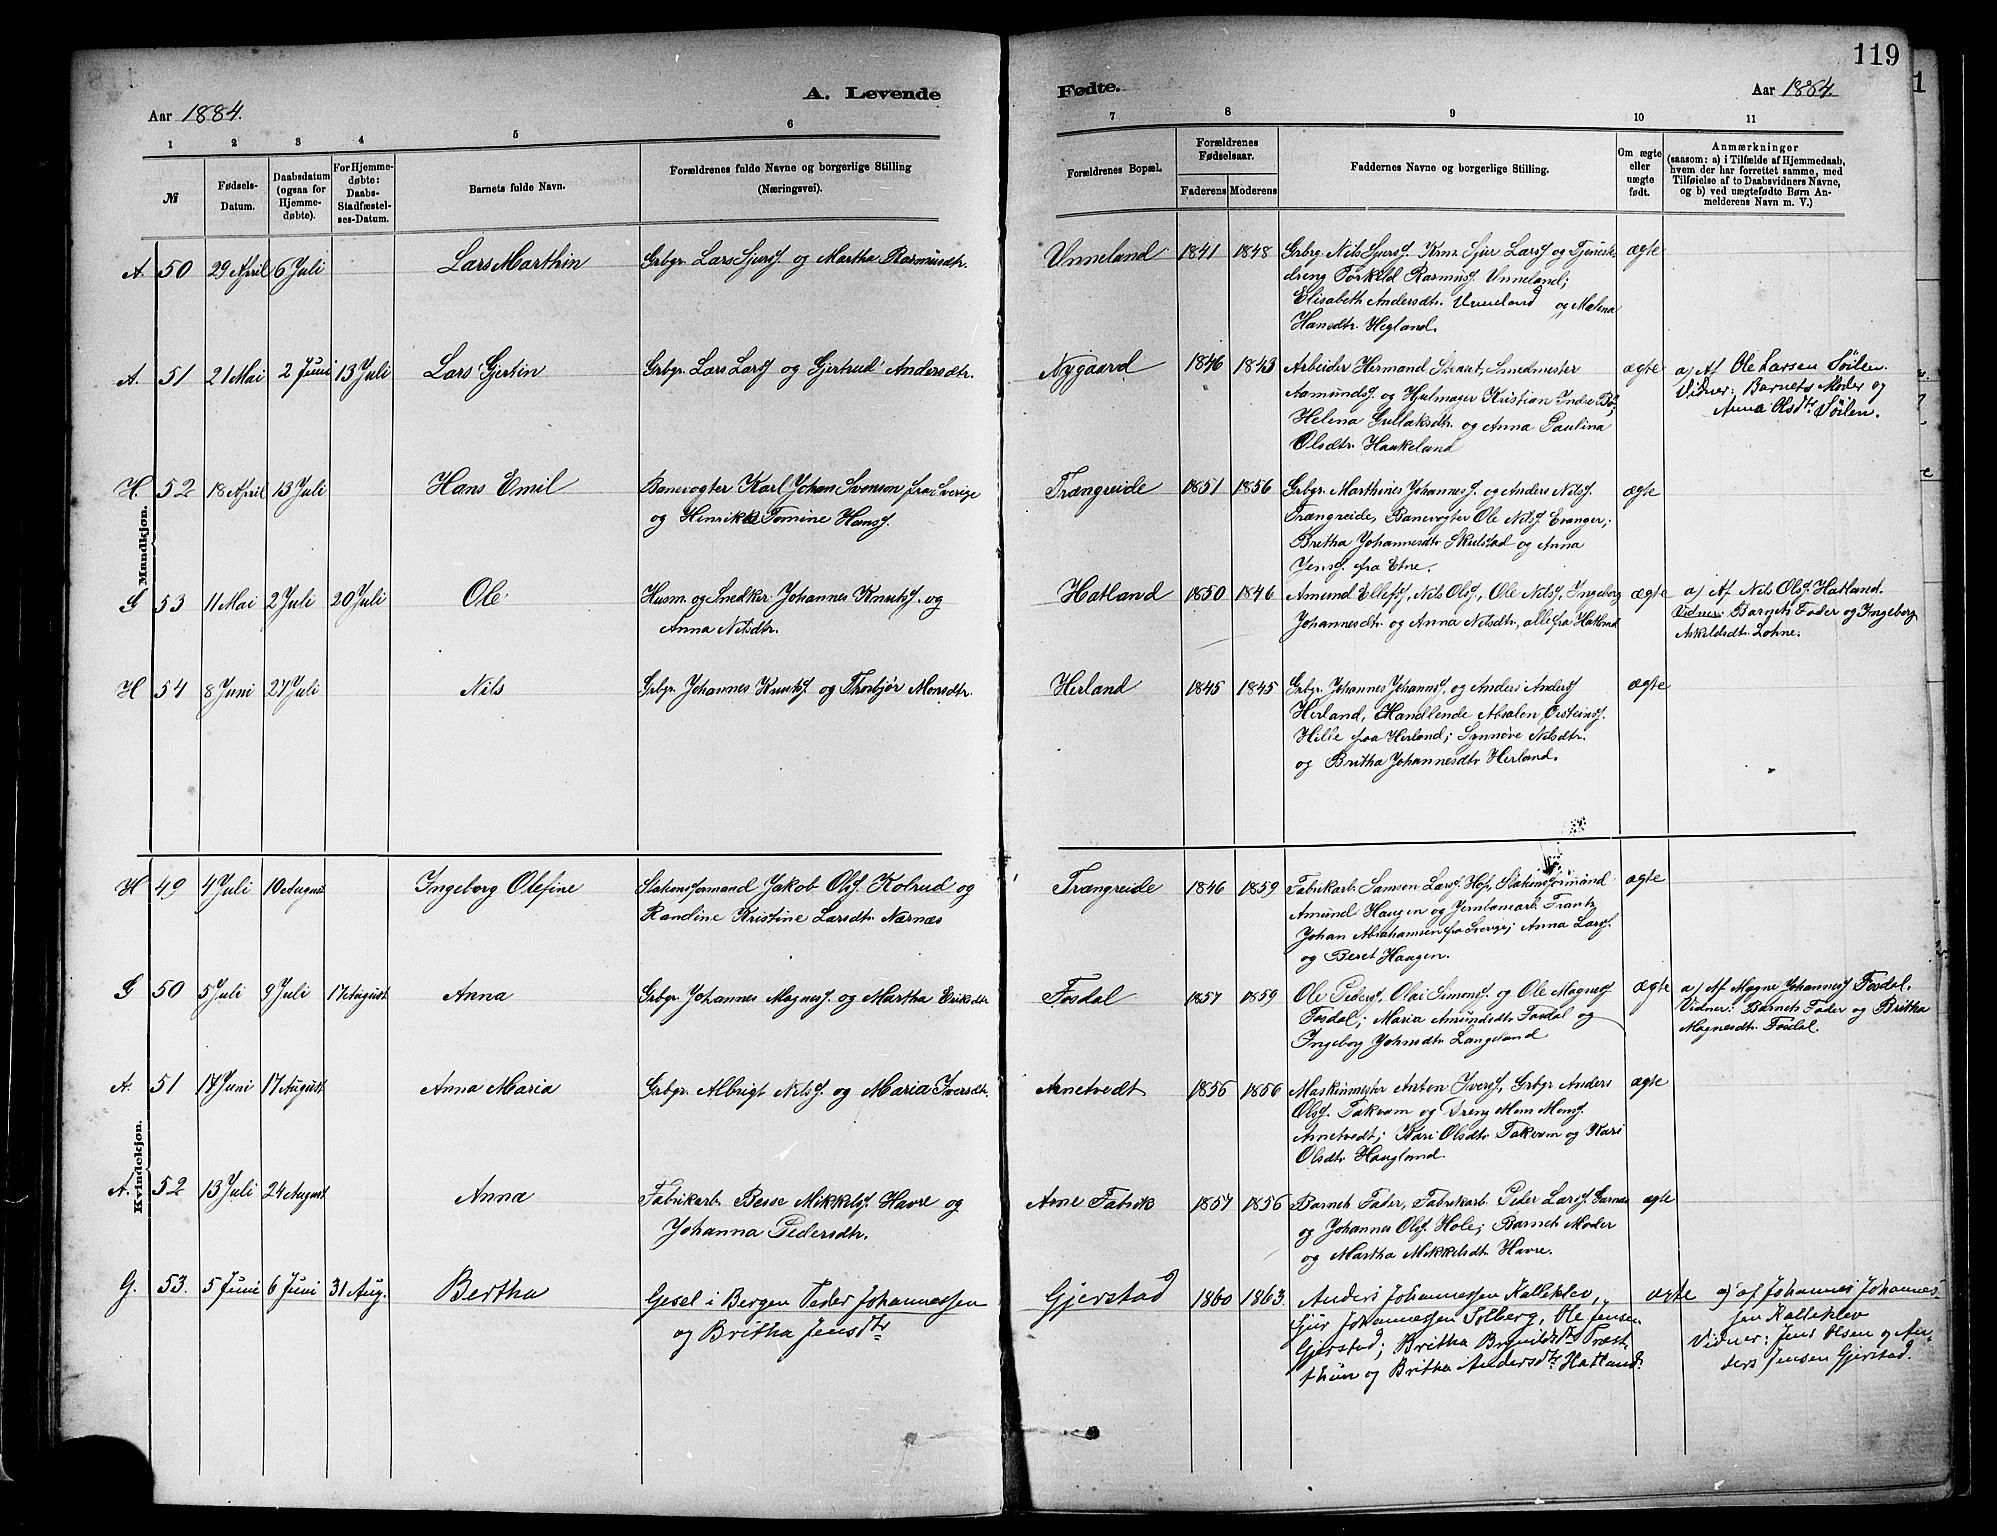 119
A. Levende
Fødte.
Aar 1884.
Aar 1884.
1 2 3 4 5 6 7 8 9 10 11
№
Fødsels-
Datum.
Daabsdatum
(ogsaa for
Hjemme-
døbte).
For Hjemme-
døbte:
Daabs-
Stadfæstel-
ses-Datum.
Barnets fulde Navn.
Forældrenes fulde Navne og borgerlige Stilling
(Næringsvei).
Forældrenes Bopæl.
Forældrenes
Fødselsaar.
Faderens Moderens
Faddernes Navne og borgerlige Stilling.
Om ægte
eller
uægte
født.
Anmærkninger
(saasom: a) i Tilfælde af Hjemmedaab,
hvem der har forrettet samme, med
Tilføielse af to Daabsvidners Navne,
og b) ved uægtefødte Børn An-
melderens Navn m. V.)
Mandkjøn.
A. 50 29 April 6 Juli Lars Marthin Grbgr. Lars Sjursf. og Martha Rasmusdtr. Unneland 1841 1848 Grbrg. Nils Sjursf. Kmr. Sjur Larsf. og Tjeneste-
dreng Torkeld Rasmusf. Unneland;
Elisabeth Andersdtr. Unneland og Malena
Hansdtr. Hegland. ægte
A. 51 21 Mai 2 Juni 13 Juli Lars Gjertin Grbgr. Lars Larsf. og Gjertrud Andersdtr. Nygaard 1846 1843 Arbeider Hermand Steaset, Smedmester
Aamundsf. og Hjulmager Kristian Indre Bø;
Helena Gullaksdtr. og Anna Paulina
Olsdtr. Haukeland ægte a) Af Ole Larsen Søilen.
Vidner: Barnets Moder og
Anna Olsdtr Søilen.
H. 52 18 April 13 Juli Hans Emil Banevogter Karl Johan Svenson fra Sverige
og Henrikke Tomine Hansf. Trængreide 1851 1856 Grbgr. Marthines Johannesf. og Anders Nilsf.
Trængreide, Banevogter Ole Nilsf. Evanger;
Bretha Johannesdtr Skulstad og Anna
Jensf. fra Etne. ægte
G 53 11 Mai 2 Juli 20 Juli Ole Husm. og Snedker Johannes Knutsf. og
Anna Nilsdtr. Hatland 1850 1846 Amund Ellefsf, Nils Olsf, Ole Nilsf, Ingeborg
Johannesdtr. og Anna Nilsdtr., alle fra Hatland ægte a) Af Nils Olsf. Hatland.
Vidner: Barnets Fader og Ingeborg
Askeldsdtr. Lohne.
H 54 8 Juni 27 Juli Nils Grbgr. Johannes Knutsf og Thorbjør Monsdtr. Herland 1845 1845 Grbgr. Johannes Johannsf, og Anders Andersf
Herland, Handlende Absalen Oisteinsf.
Hille fra Herland; Synnøve Nilsdtr.
og Britha Johannesdtr Herland. ægte
Kvindekjøn.
H 49 4 Juli 10 August Ingeborg Olefine Stationsformand Jakob Olsf. Kolrud og
Randine Kristine Larsdtr. Nærnæs Trængreide 1846 1859 Fabrikarb. Samson Larsf. Hop, Stationsformand
Amund Haugen og Jernbanearb. Frantz
Johan Abrahamsen fra Sverige; Anna Larsf.
og Beret Haugen. ægte
G 50 5 Juli 9 Juli 17 August Anna Grbgr Johannes Magnesf. og Martha Eriksdtr Fosdal 1857 1859 Ole Pedersf, Olai Simonsf. og Ole Magnesf
Fosdal; Maria Amundsdtr. Fosdal og
Ingeborg Johnsdtr Langeland ægte a) Af Magne Johannesf Fosdal.
Vidner: Barnets Fader og Britha
Magnesdtr. Fosdal.
A. 51 17 Juni 17 August Anna Maria Grbgr. Albrigt Nilsf. og Maria Iversdtr. Arnetvedt 1856 1856 Maskinmester Anton Iversf, Grbgr Anders
Olsf. Takvam og Dreng Mons Monsf.
Arnetvedt; Kari Olsdtr. Takvam og Kari
Olsdtr. Haugland. ægte
A. 52 13 Juli 24 August Anna Fabrikarb. Besse Mikkelsf. Havre og
Johanna Pedersdtr. Arne Fabrik 1857 1856 Barnets Fader, Fabrikarb. Peder Larsf. Garnæs
og Johannes Olsf. Hole; Barnets Moder
og Martha Mikkelsdtr. Havre. ægte
G. 53. 5 Juni 6 Juni 31 Aug. Bertha Gesel i Bergen Peder Johannessen
og Britha Jensdtr Gjerstad 1860 1863. Anders Johannessen Kalleklev,
Sjur Johannessen Solberg, Ole Jensen
Gjerstad; Britha Brynildsdtr Præst-
thun og Britha Andersdtr Hatland. ægte a) af Johannes Johannes-
sen Kalleklev
Vidner: Jens Olsen og An-
ders Jensen Gjerstad.